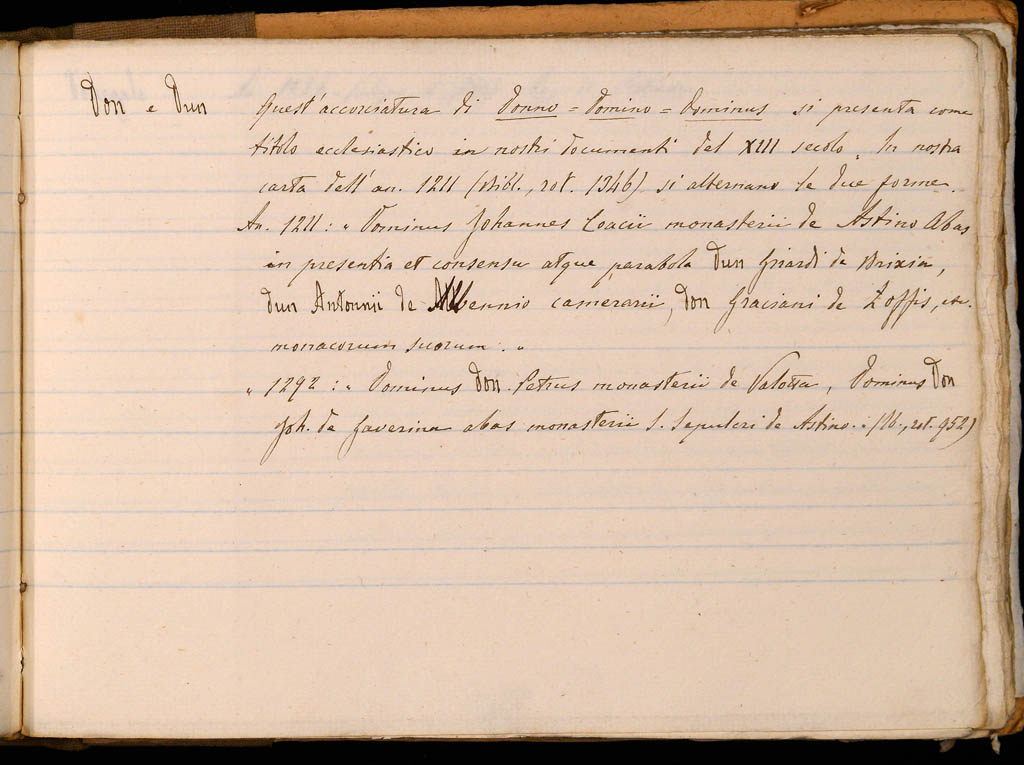 Don e Dun Quest'accorciatura di Donno = Domino = Dominus si presenta come
titolo ecclesiastico in nostri documenti del XIII secolo. In nostra
carta dell'an. 1211 (Bibl., rot. 1346) si alternano le due forme.
An. 1211: "Dominus Johannes Coacii monasterii de Astino Abas
in presentia et consensu atque parabola dun Girardi de Brixia,
dun Antonnii de Albennio camerarii, don Graciani de Zoffis, etc.
monacorum suorum."
" 1292: "Dominus don Petrus monasterii de Valota, Dominus Don
Joh. de Gaverina abas monasterii S. Sepulcri de Astino." (Ib., rot. 952)